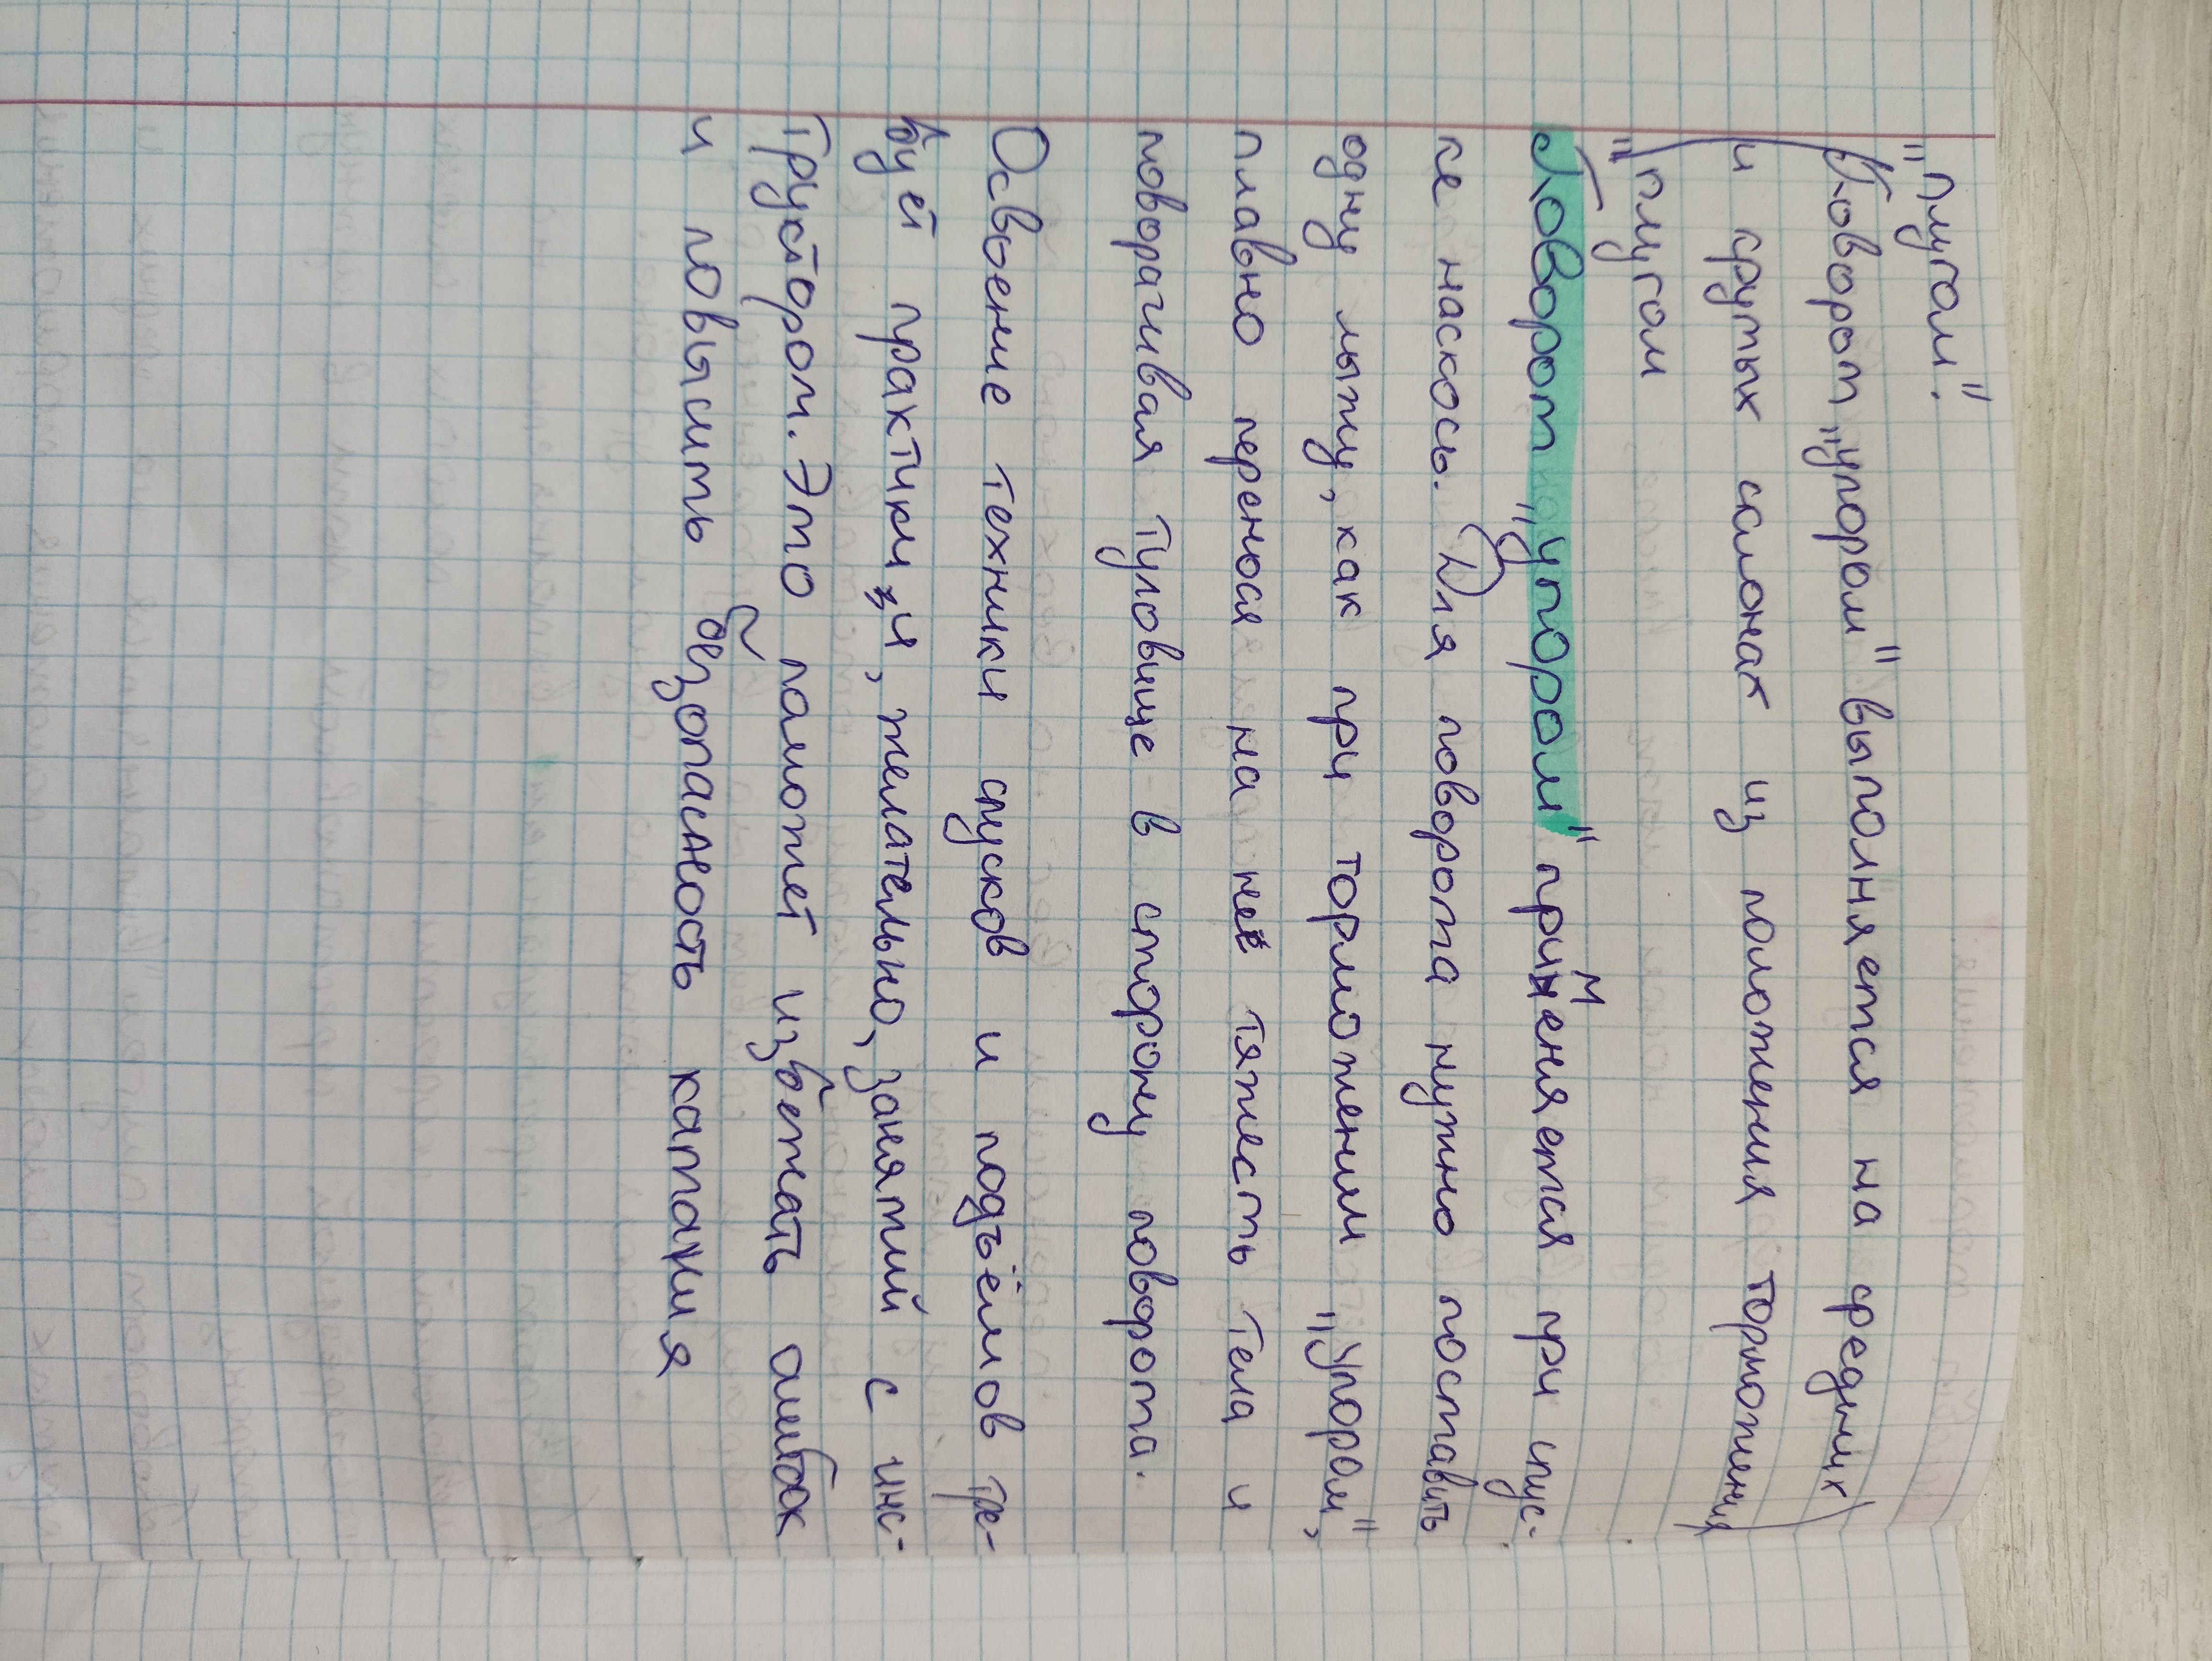 "плугом".
(Поворот „упором" выполняется на средних
и крутых склонах из положения торможения
"плугом
Поворот „упором" применяется при спус-
ке наскось. Для поворота нужно поставить
одну лыжу, как при торможении „упором",
плавно перенося на неё тяжесть тела и
поворачивая туловище в сторону поворота.
Освоение техники спусков и подъёмов тре-
бует практики и, желательно, занятий с инс-
труктором. Это поможет избежать ошибок
и повысить безопасность катания